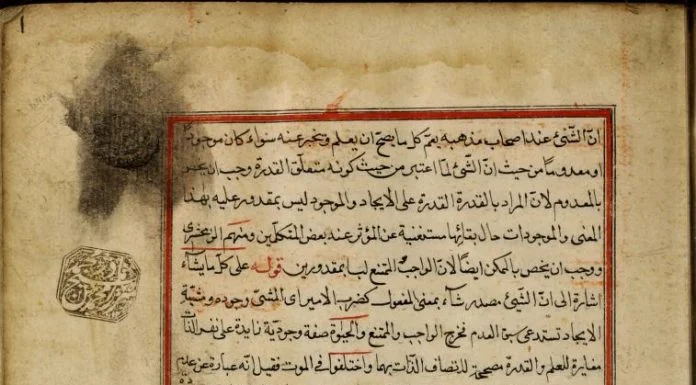 انّ الشّئ عند اصحاب مذهبه يعمّ كل ما يصحّ ان يعلم ويخبر عنه سواء كان موجودا
او معدوما من حيث انّ الشّئ لمّا اعتبر من حيث كونه متعلّق القدرة وجب ان
بالمعدوم لانّ المراد بالقدرة القدرة على الايجاد والموجود ليس بمقدور عليه بهذا
المعنى والموجودات حال بقائها مستغنية عن المؤثر عند بعض المتكلّمين ومنهم الزمخشرى
ووجب ان يختص بالممكن ايضًا لانّ الواجب والممتنع ليسا بمقدورين قوله على كلّ ما يشآء
اشارة الى انّ الشّئ مصدر شآء بمعنى المفعول كضرب الامير اى المشئ وجوده ومشيّة
الايجاد تستدعى سبق العدم فخرج الواجب والممتنع والحيٰوة صفة وجوديّة زايدة على نفس الذّات
مغايرة للعلم والقدرة مصحّحة لاتصاف الذّات بهما واختلفوا فى الموت فقيل انّه عبارة عن عدم